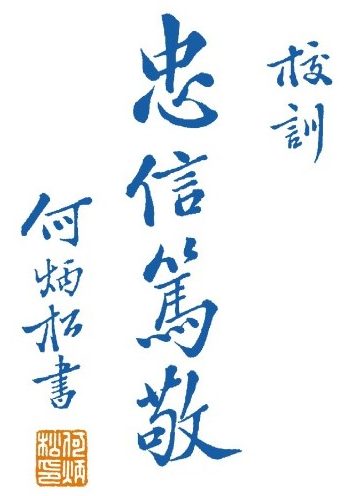 校訓
忠信篤敬
何炳松書
何炳松印